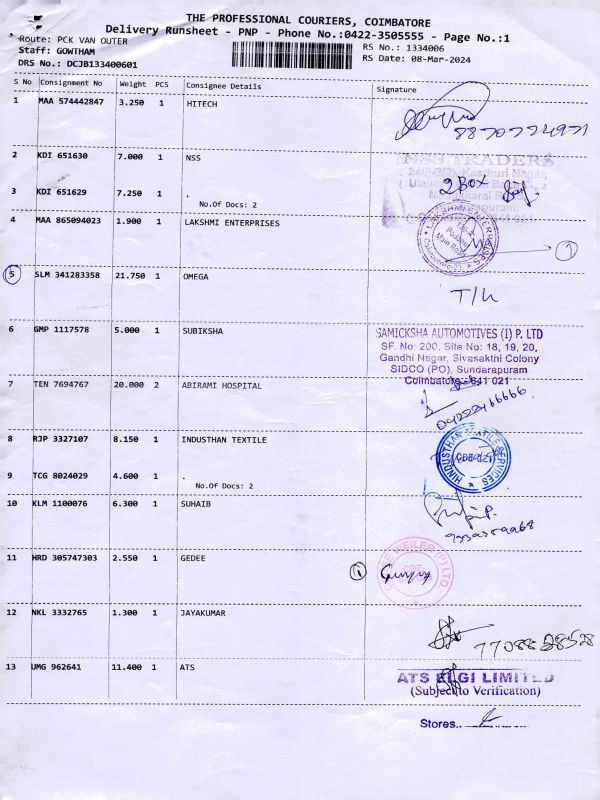 THE PROFESSIONAL COURIERS, COIMBATORE
Delivery Runsheet - PNP - Phone No.:0422-3505555 - Page No.:1
Route: PCK VAN OUTER
RS No.: 1334006
Staff: GOWTHAM
RS Date: 08-Mar-2024
DRS No.: DCJB133400601
S No Consignment No Weight PCS Consignee Details Signature
1 MAA 574442847 3.250 1 HITECH
2 KDI 651630 7.000 1 NSS
NSS TRADERS
3 KDI 651629 7.250 1 .
2 Box
No.Of Docs: 2
4 MAA 865094023 1.900 1 LAKSHMI ENTERPRISES
LAKSHMI ENTERPRISES
1
5 SLM 341283358 21.750 1 OMEGA
6 GMP 1117578 5.000 1 SUBIKSHA
SAMICKSHA AUTOMOTIVES (I) P. LTD
SF. No: 200, Site No: 18, 19, 20,
Gandhi Nagar, Sivasakthi Colony
SIDCO (PO), Sundarapuram
Coimbatore-641 021
7 TEN 7694767 20.000 2 ABIRAMI HOSPITAL
04222466666
8 RJP 3327107 8.150 1 INDUSTHAN TEXTILE
HINDUSTHAN TEXTILE SERVICES
CBE-021
9 TCG 8024029 4.600 1 .
No.Of Docs: 2
10 KLM 1100076 6.300 1 SUHAIB
11 HRD 305747303 2.550 1 GEDEE
1
12 NKL 3332765 1.300 1 JAYAKUMAR
13 UMG 962641 11.400 1 ATS
ATS ELGI LIMITED
(Subject to Verification)
Stores..